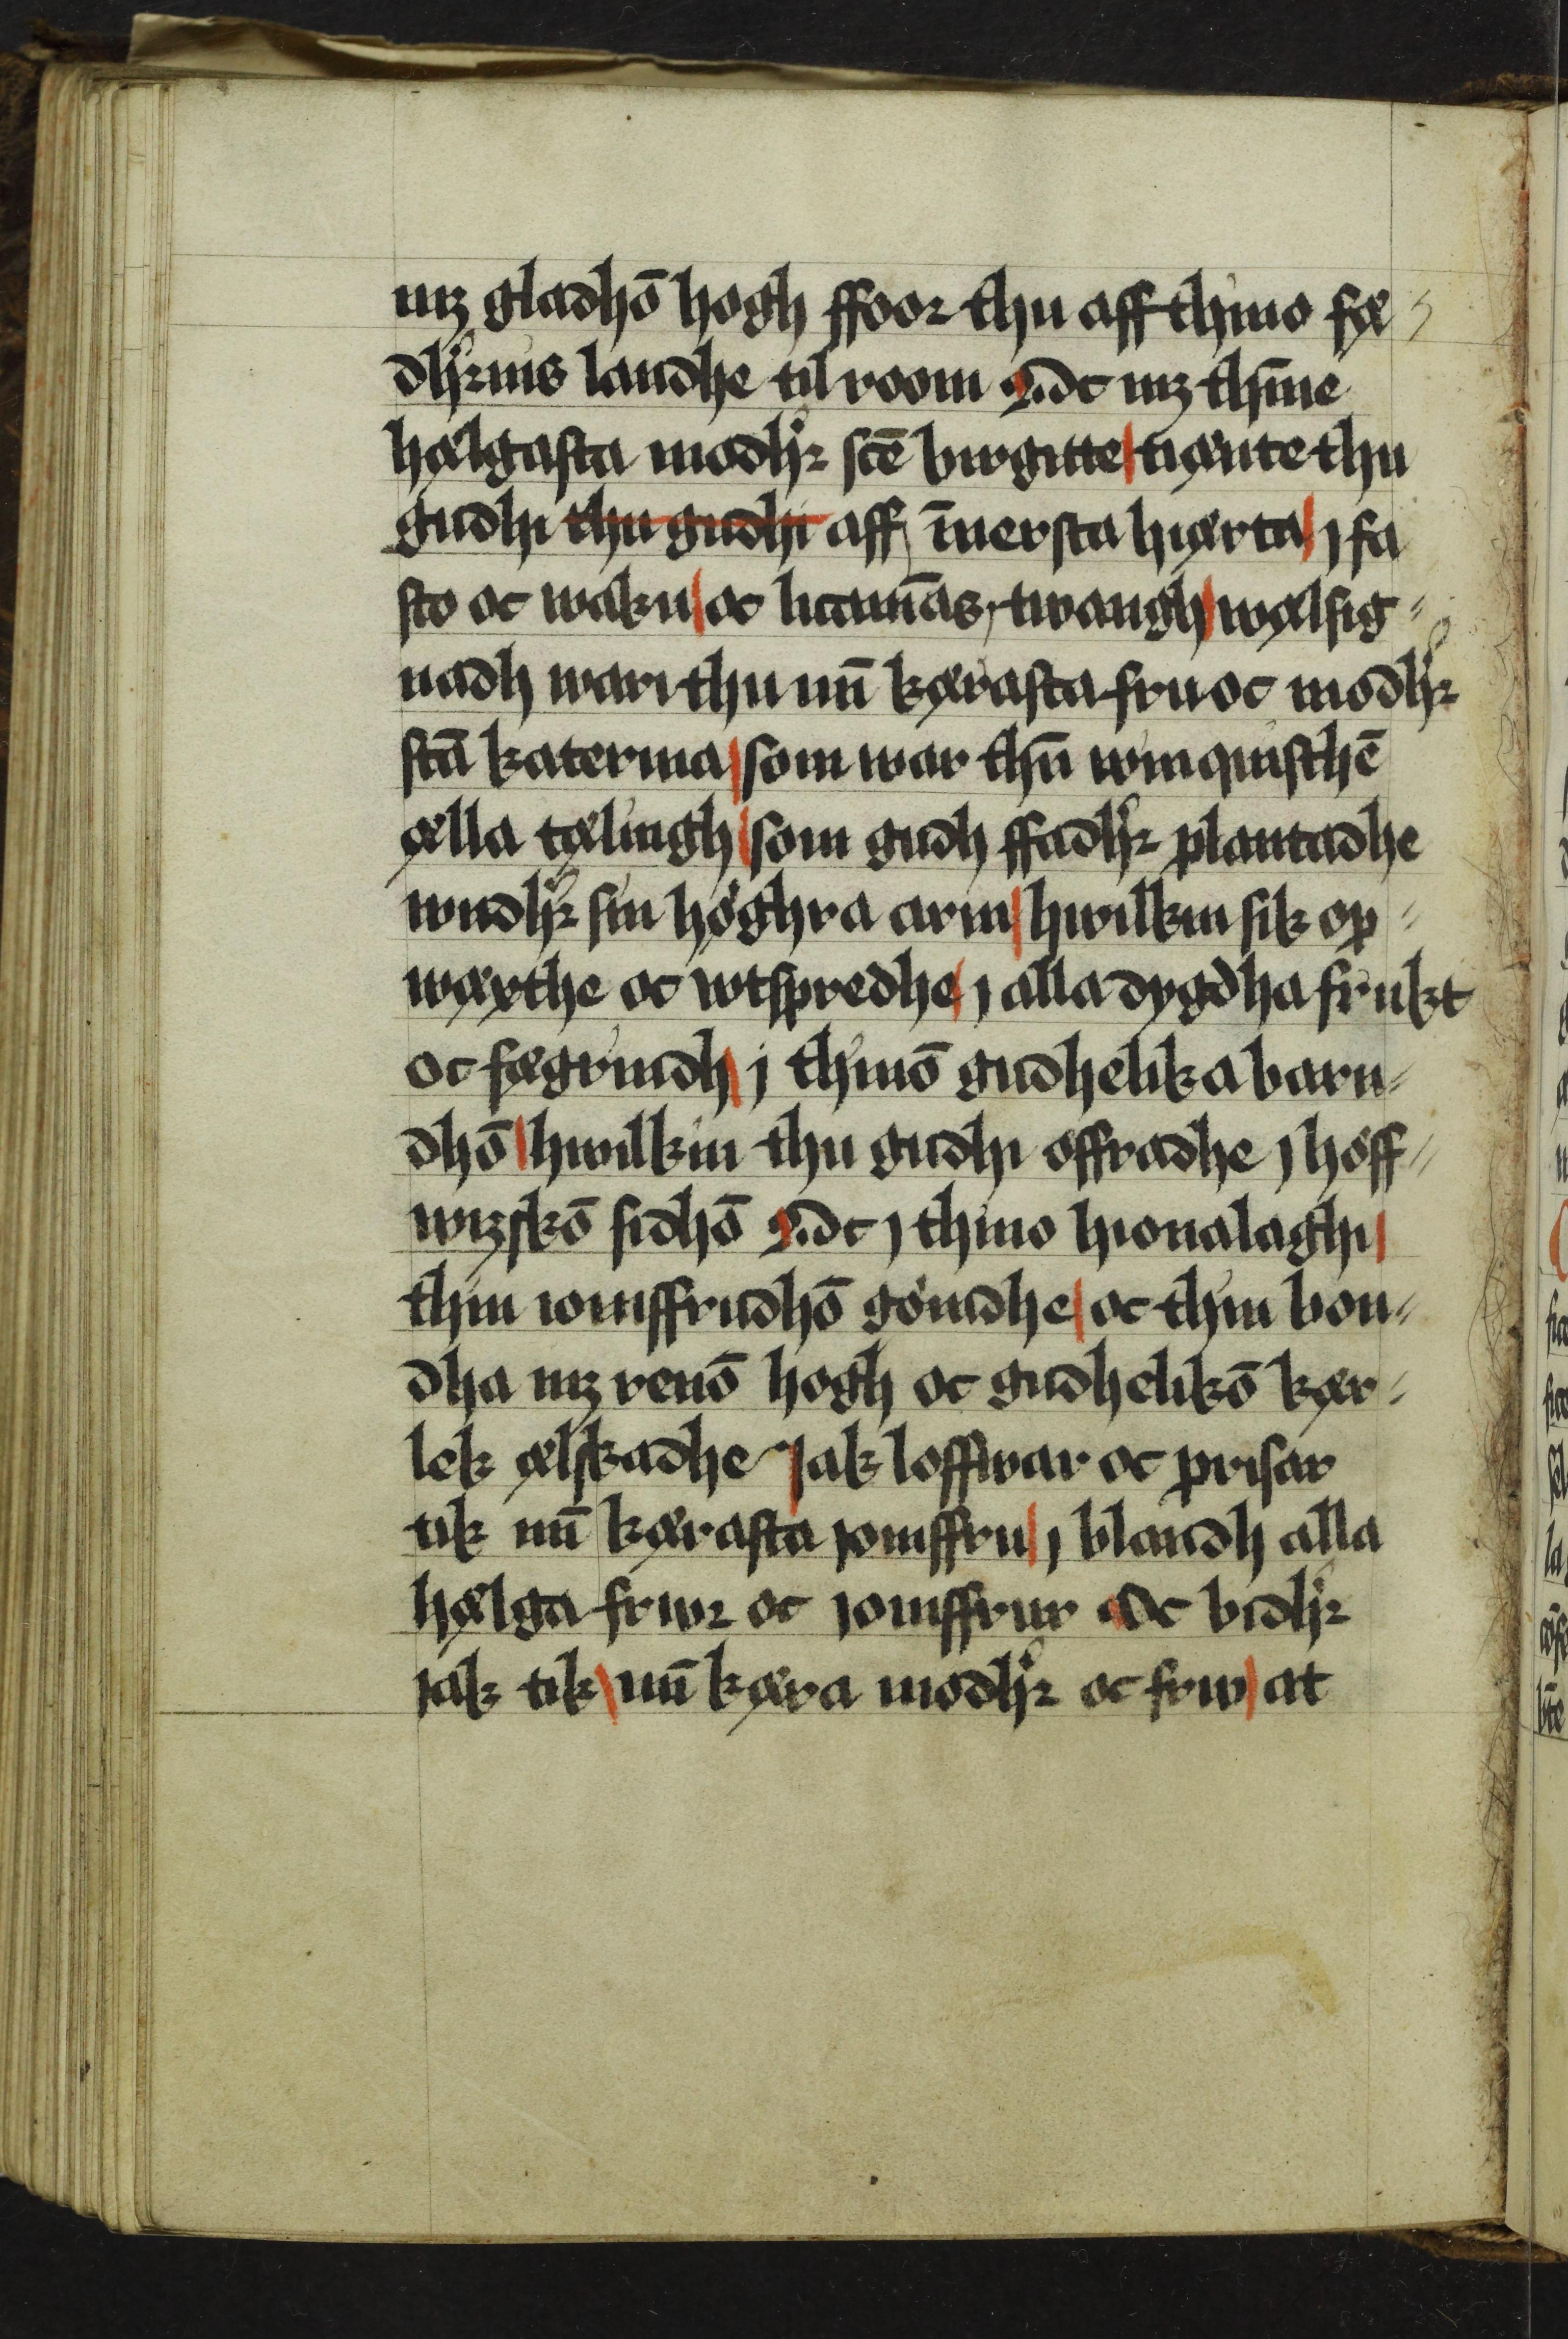 mꝫ gladhō hogh ffoor thu aff thino fæ
dhꝛnis landhe til room Oc mꝫ thīne
hælgasta modhꝛ scē birgitte tiænte thu
gudhi thu gudhi aff īnersta hiærta j fa
sto oc waku oc licamēs twangh wælsig
nadh wari thu mī kærasta fru oc modhꝛ
stā katerina som war thn̄ winquisthē
ælla tælingh som gudh ffadhꝛ plantadhe
wndhꝛ sin höghra arm hwilkin sik op
wæxthe oc wtspredhe j alla dygdha frukt
oc fægrindh j thinō gudhelika barn
dhō hwilkin thu gudhi offradhe j höff
wiꝫskō sidhō Oc j thino hionalaghi
thin iomffrudhō gömdhe oc thin bon
dha mꝫ renō hogh oc gudhelikō kær
lek ælskadhe Jak loffwar oc prisar
tik mī kærasta jomffru j blandh alla
hælga frwr oc jomffrur Oc bidhꝛ
jak tik mī kæra modhꝛ oc frw at